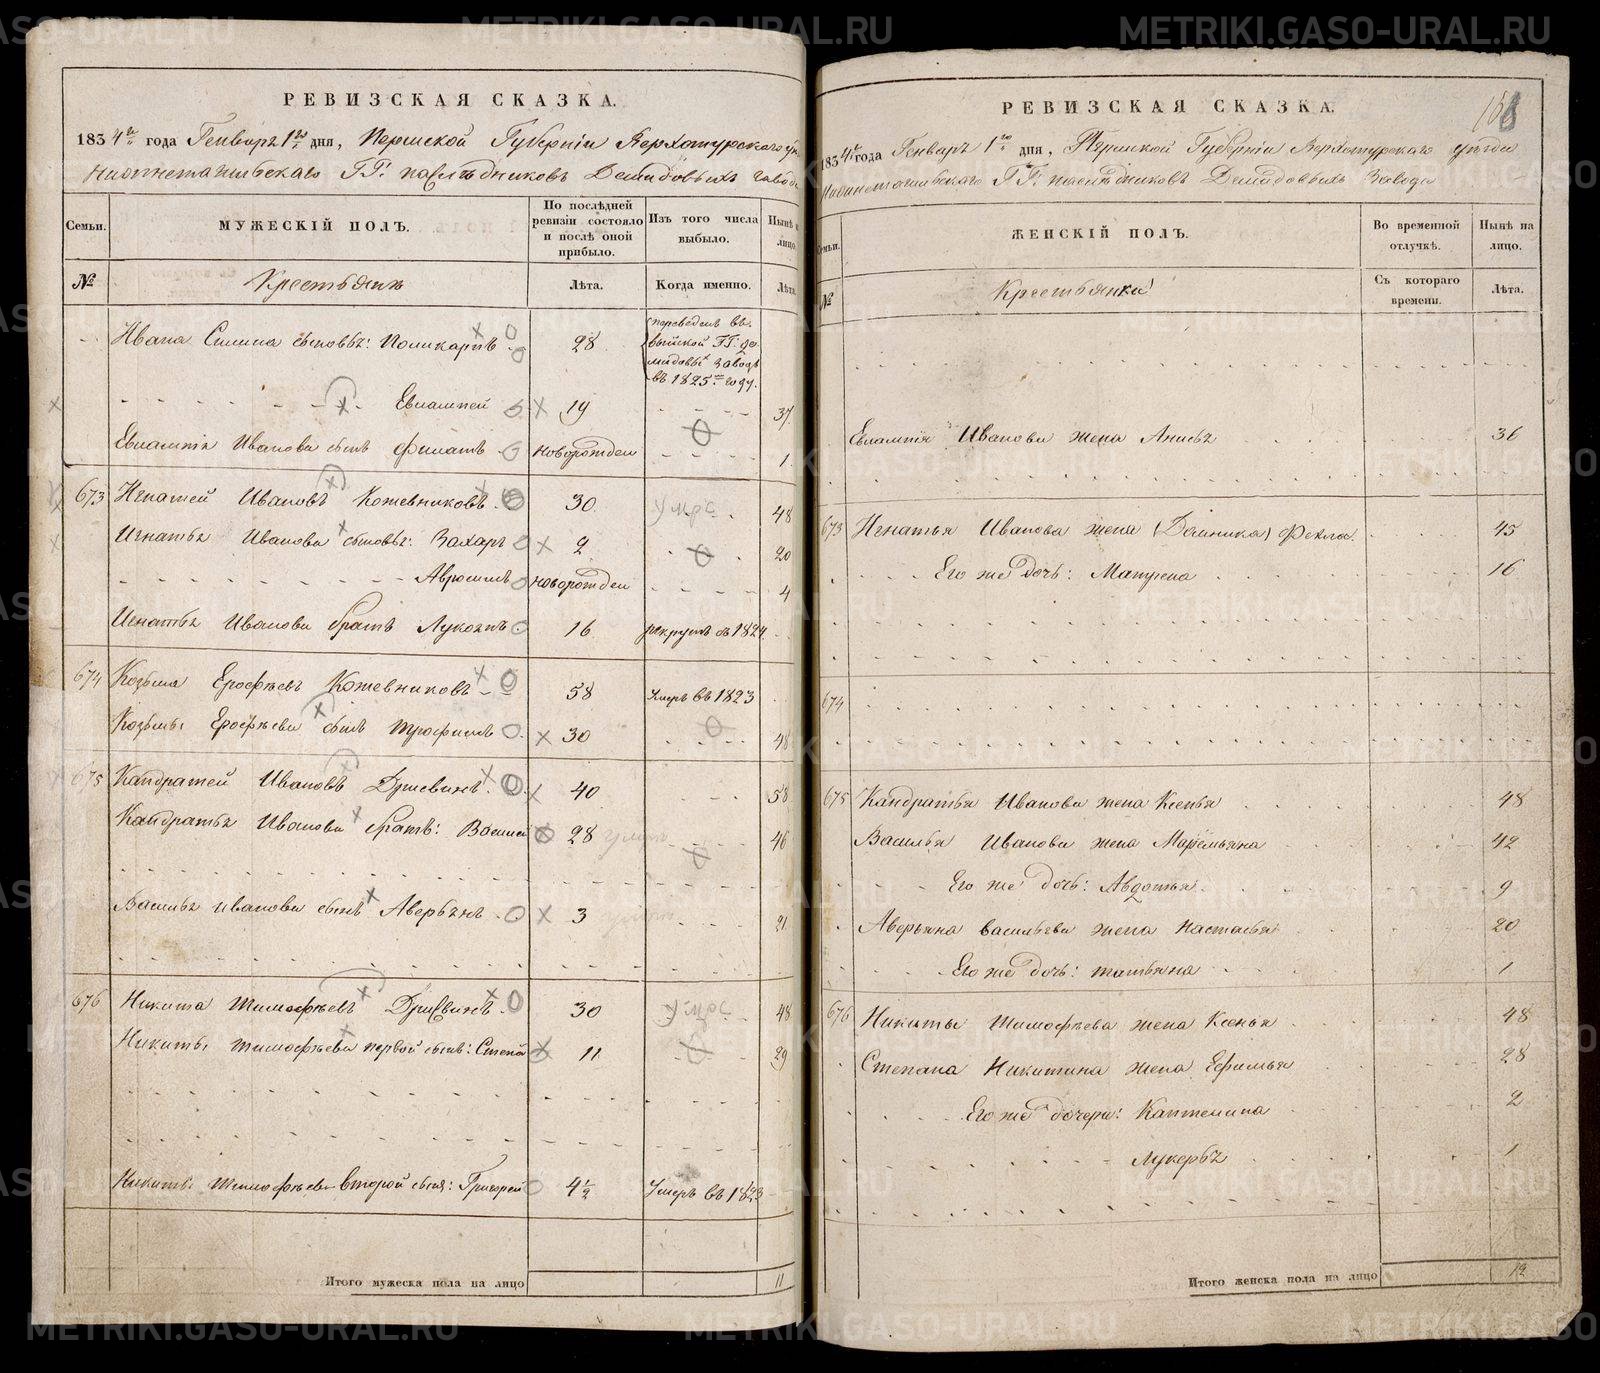 РЕВИЗСКАЯ СКАЗКА.
1834го года Генваря 1го дня, Пермской Губерніи Верхотурскаго
Нижнетагильскаго ГГ: наслѣдниковъ Демидовыхъ завода
Семьи.
МУЖЕСКІЙ ПОЛЪ.
По послѣдней ревизіи состояло и послѣ оной прибыло.
Изъ того числа выбыло.
Нынѣ на лицо.
№
Крестьянъ
Лѣта.
Когда именно.
Лѣта.
Ивана Силина сыновья: Поликарпъ 28 переведенъ въ выйской ГГ: Демидовыхъ заводъ въ 1825м году.
Евлампей 19 37
Евлампія Иванова сынъ Филатъ новорожден 1
673 Игнатей Ивановъ Кожевниковъ 30 умре 48
Игнатья Иванова сыновья: Захаръ 2 20
Авросимъ новорожден 4
Игнатья Иванова братъ Лукоянъ 16 рекрутъ въ 1824
674 Козьма Ерофѣевъ Кожевниковъ 58 Умеръ въ 1823
Козьмы Ерофѣева сынъ Трофимъ 30 48
675 Кандратей Ивановъ 40 58
Кандратья Иванова братъ: Василей 28 46
Василья Иванова сынъ Аверьянъ 3 21
676 Никита Тимофѣевъ 30 умре 48
Никиты Тимофѣева первой сынъ: Степанъ 11 29
Никиты Тимофѣева второй сынъ: Григорей 4½ Умеръ въ 1823
Итого мужеска пола на лицо 11
РЕВИЗСКАЯ СКАЗКА.
1834го года Генваря 1го дня, Пермской Губерніи Верхотурскаго уѣзда
Нижнетагильскаго ГГ: наслѣдниковъ Демидовыхъ Завода
Семьи.
ЖЕНСКІЙ ПОЛЪ.
Во временной отлучкѣ.
Нынѣ на лицо.
№
Крестьянки
Съ котораго времени.
Лѣта.
Евлампія Иванова жена Анисья 36
673 Игнатья Иванова жена (Домника) Фекла 45
Его же дочь: Матрена 16
674
675 Кандратья Иванова жена Ксенья 48
Василья Иванова жена Маремьяна 42
Его же дочь: Авдотья 9
Аверьяна Васильева жена Настасья 20
Его же дочь: Татьяна 1
676 Никиты Тимофѣева жена Ксенья 48
Степана Никитина жена Ефимья 28
Его же дочери: Каптелина 2
Лукерья 1
Итого женска пола на лицо 12
METRIKI.GASO-URAL.RU